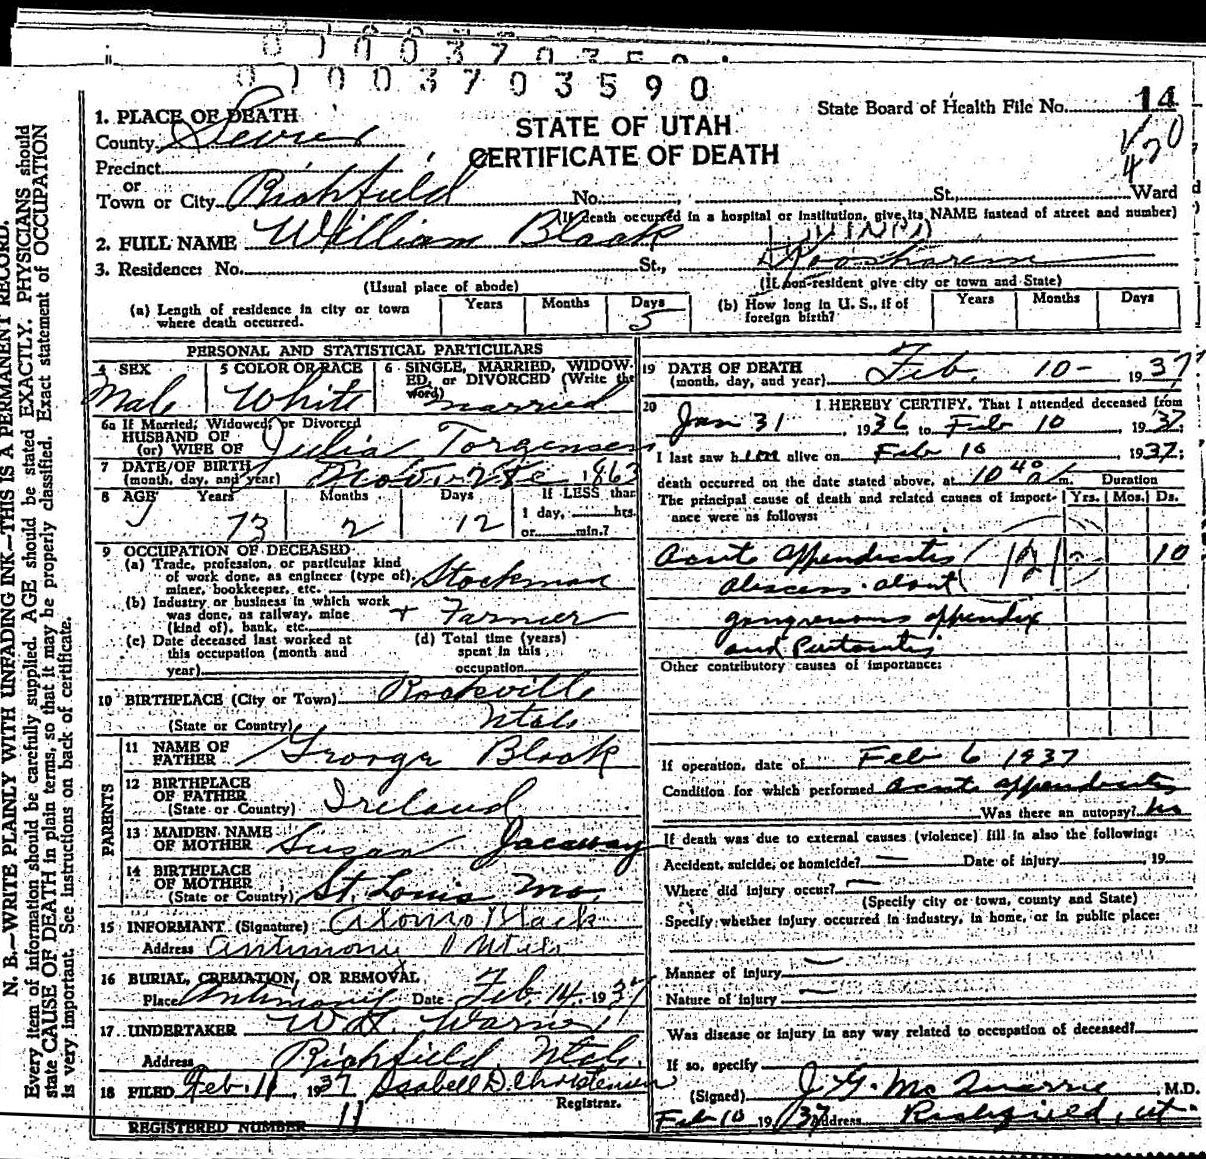 0 1 0 0 3 7 0 3 5 9 0
N. B.—WRITE PLAINLY WITH UNFADING INK—THIS IS A PERMANENT RECORD.
Every item of information should be carefully supplied. AGE should be stated EXACTLY. PHYSICIANS should
state CAUSE OF DEATH in plain terms, so that it may be properly classified. Exact statement of OCCUPATION
is very important. See instructions on back of certificate.
State Board of Health File No. 14
420
STATE OF UTAH
CERTIFICATE OF DEATH
1. PLACE OF DEATH
County Sevier
Precinct
or
Town or City Richfield No. St. Ward
(If death occurred in a hospital or institution, give its NAME instead of street and number)
2. FULL NAME William Black
3. Residence: No. St., Koosharem
(Usual place of abode) (If non-resident give city or town and State)
(a) Length of residence in city or town where death occurred. Years Months Days 5
(b) How long in U. S., if of foreign birth? Years Months Days
PERSONAL AND STATISTICAL PARTICULARS
4 SEX Male
5 COLOR OR RACE White
6 SINGLE, MARRIED, WIDOWED, or DIVORCED (Write the word) married
6a If Married, Widowed, or Divorced
HUSBAND OF
(or) WIFE OF Julia Torgensen
7 DATE OF BIRTH
(month, day, and year) 1863
8 AGE Years 73 Months 2 Days 12 If LESS than
1 day, hrs.
or min.?
9 OCCUPATION OF DECEASED
(a) Trade, profession, or particular kind
of work done, as engineer (type of),
miner, bookkeeper, etc. Stockman
(b) Industry or business in which work
was done, as railway, mine
(kind of), bank, etc. + Farmer
(c) Date deceased last worked at
this occupation (month and
year)
(d) Total time (years)
spent in this
occupation
10 BIRTHPLACE (City or Town) Rockville
(State or Country) Utah
PARENTS
11 NAME OF
FATHER George Black
12 BIRTHPLACE
OF FATHER
(State or Country) Ireland
13 MAIDEN NAME
OF MOTHER Susan Jacaway
14 BIRTHPLACE
OF MOTHER
(State or Country) St. Louis Mo.
15 INFORMANT (Signature) Alonzo Black
Address Antimony Utah
16 BURIAL, CREMATION, OR REMOVAL
Place Antimony Date Feb. 14. 1937
17. UNDERTAKER Warner
Address Richfield Utah.
18 FILED Feb. 11, 1937 Isabell D. Christensen
Registrar.
REGISTERED NUMBER 11
19 DATE OF DEATH
(month, day, and year) Feb. 10- 1937
20 I HEREBY CERTIFY, That I attended deceased from
Jan 31, 1936 to Feb 10 1937;
I last saw him alive on Feb 10 1937;
death occurred on the date stated above, at 10 40 a m.
Duration
The principal cause of death and related causes of importance were as follows: Yrs. Mos. Ds.
Acute appendicitis 121 10
abscess about
gangrenous appendix
and Peritonitis
Other contributory causes of importance:
If operation, date of Feb 6 1937
Condition for which performed acute appendicitis
Was there an autopsy? no
If death was due to external causes (violence) fill in also the following:
Accident, suicide, or homicide? — Date of injury , 19
Where did injury occur? —
(Specify city or town, county and State)
Specify whether injury occurred in industry, in home, or in public place:
Manner of injury —
Nature of injury —
Was disease or injury in any way related to occupation of deceased?
If so, specify
(Signed) J. G. McQuarrie, M.D.
Feb 10 1937 Address Richfield, Ut.